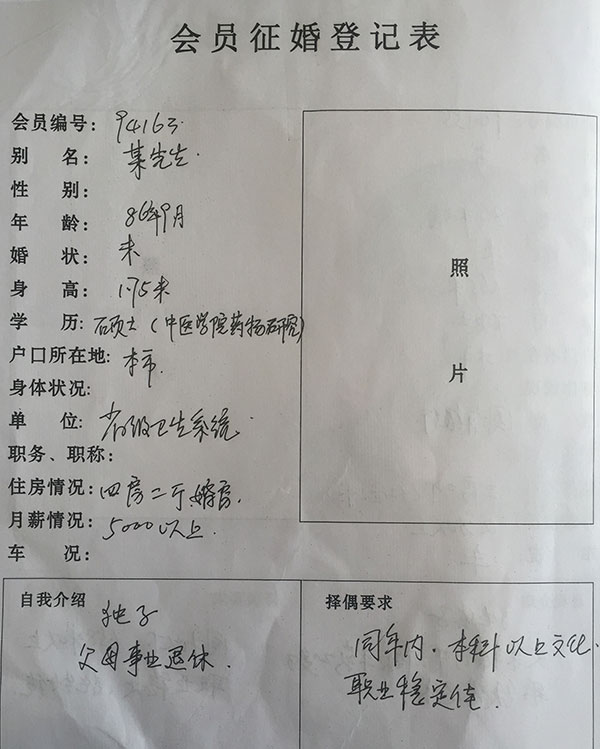 会员征婚登记表
会员编号: 94163
别 名: 某先生.
性 别:
年 龄: 86年9月
婚 状: 未
身 高: 1.75米
学 历: 硕士(中医学院药物研究)
户口所在地: 本市.
身体状况:
单 位: 省级卫生系统.
职务、职称:
住房情况: 四房二厅.婚房.
月薪情况: 5000以上.
车 况:
照
片
自我介绍
独子
父母事业退休.
择偶要求
同年内.本科以上文化.
职业稳定佳.